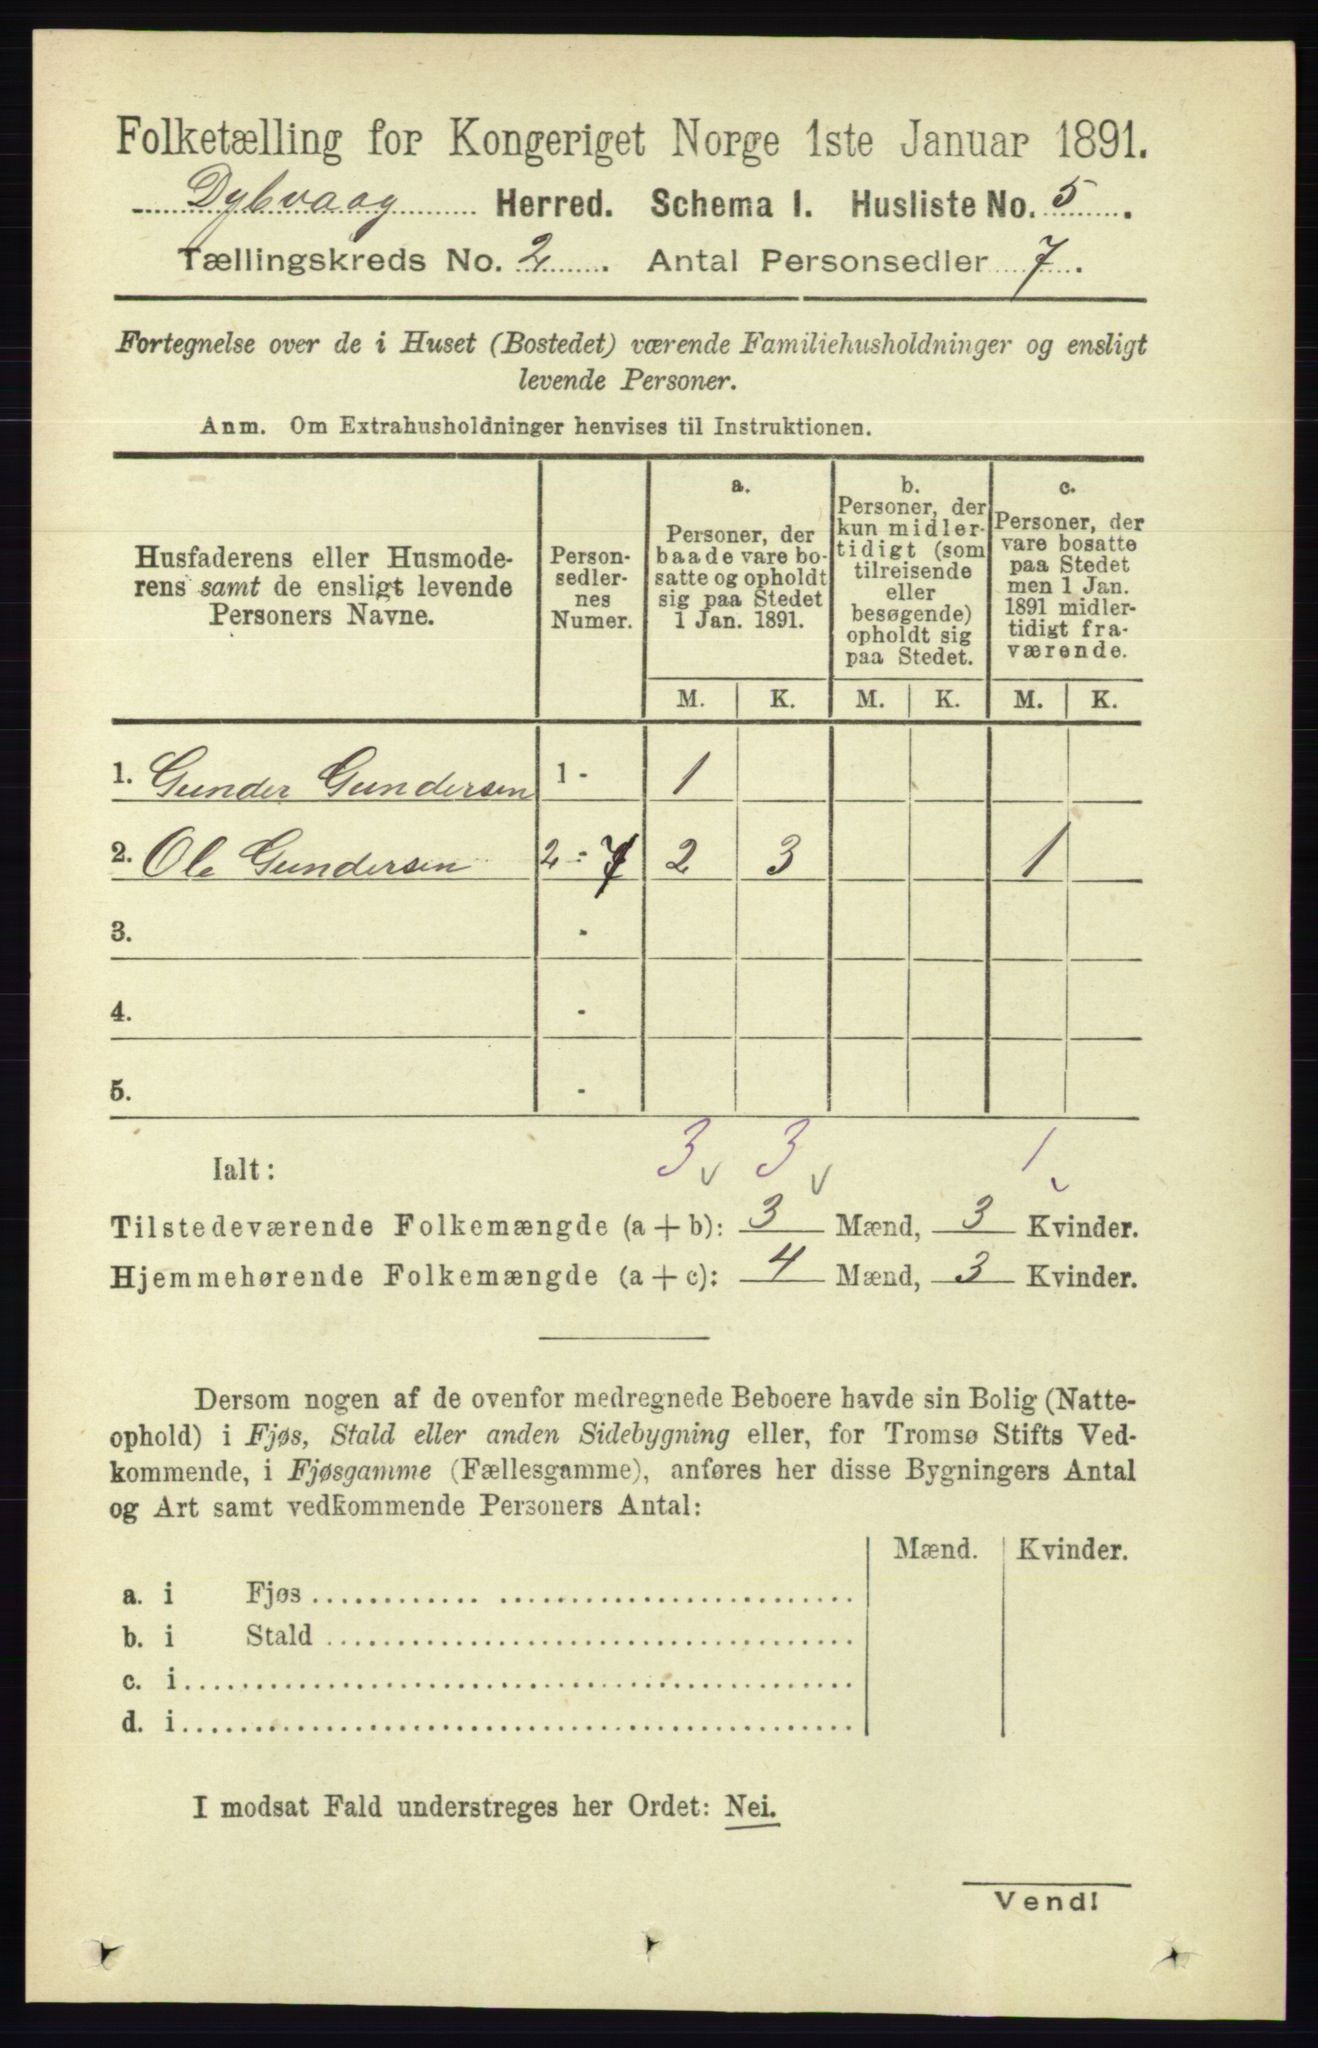 Folketælling for Kongeriget Norge 1ste Januar 1891.
Dybvaag Herred. Schema I. Husliste No. 5.
Tællingskreds No. 2. Antal Personsedler 7.
Fortegnelse over de i Huset (Bostedet) værende Familiehusholdninger og ensligt
levende Personer.
Anm. Om Extrahusholdninger henvises til Instruktionen.
Husfaderens eller Husmode-
rens samt de ensligt levende
Personers Navne.
Person-
sedler-
nes
Numer.
a.
Personer, der
baade vare bo-
satte og opholdt
sig paa Stedet
1 Jan. 1891.
b.
Personer, der
kun midler-
tidigt (som
tilreisende
eller
besøgende)
opholdt sig
paa Stedet.
c.
Personer, der
vare bosatte
paa Stedet
men 1 Jan.
1891 midler-
tidigt fra-
værende.
M. K. M. K. M. K.
1. Gunder Gundersen 1 - 1
2. Ole Gundersen 2 - 7 2 3 1
3. -
4. -
5. -
Ialt: 3 3 1
Tilstedeværende Folkemængde (a + b): 3 Mænd, 3 Kvinder.
Hjemmehørende Folkemængde (a + c): 4 Mænd, 3 Kvinder.
Dersom nogen af de ovenfor medregnede Beboere havde sin Bolig (Natte-
ophold) i Fjøs, Stald eller anden Sidebygning eller, for Tromsø Stifts Ved-
kommende, i Fjøsgamme (Fællesgamme), anføres her disse Bygningers Antal
og Art samt vedkommende Personers Antal:
Mænd. Kvinder.
a. i Fjøs
b. i Stald
c. i
d. i
I modsat Fald understreges her Ordet: Nei.
Vend!